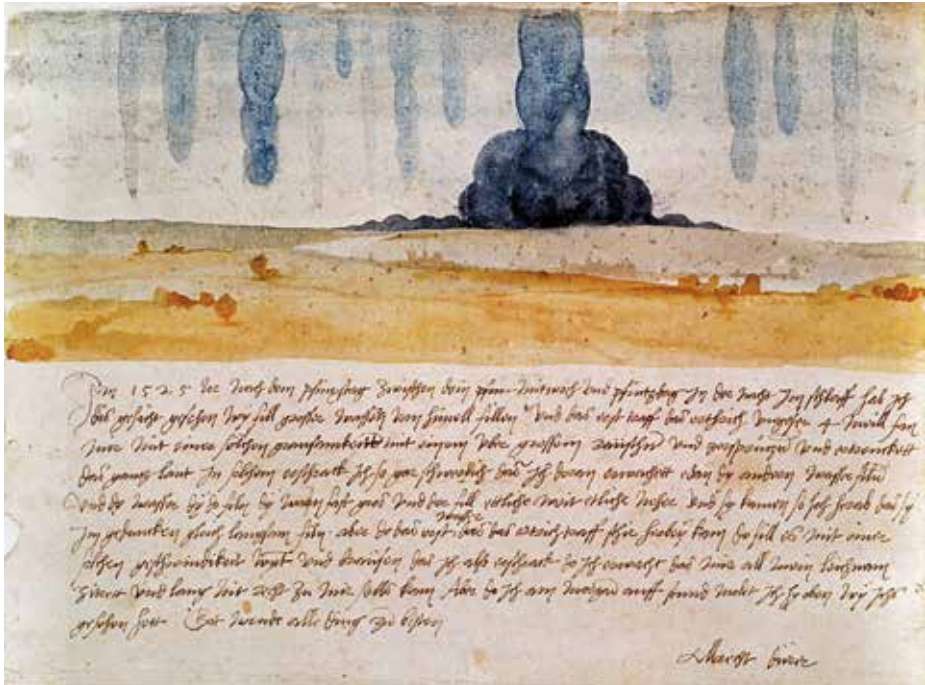 Im 1525 Jor nach dem pfinxstag zwischen dem Mitwoch und pfintzdag in der nacht im schlaff hab ich
dis gesicht gesehen wy fill grosser wassern vom himell fillen Und das erst traff das erthrich ungefer 4 meill fan
mir mit einer solchen grausamkeitt mit einem uber grossem raüschn und zersprützn und ertrenckett
das gantz lant In solchem erschrack ich so gar schwerlich das ich doran erwachett edan dy andern wasser filn
Und dy wasser dy do filn dy warn fast gros und der fill ettliche weit etliche neher und sy kamen so hoch herab das sy
im gedancken gleich langsam filn. aber do das erst wasser das das ertrich traff schir herbey kam do fill es mit einer
solchen geschwindikeit wynt und braüsen das ich also erschrack do ich erwacht das mir all mein leichnam
zitrett und lang nit recht zu mir selbs kam Aber do ich am morgn auff stund molet ich hy oben wy ichs
gesehen hett Got wende alle ding zu besten
Albrecht dürer